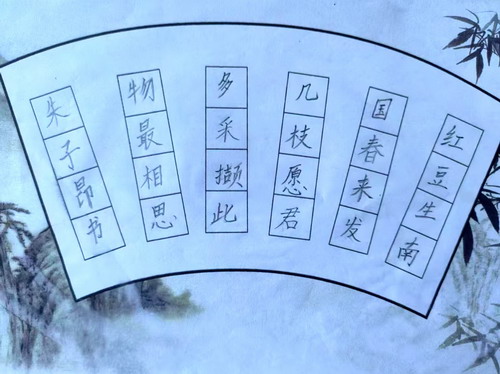 红豆生南
国春来发
几枝愿君
多采撷此
物最相思
朱子昂书